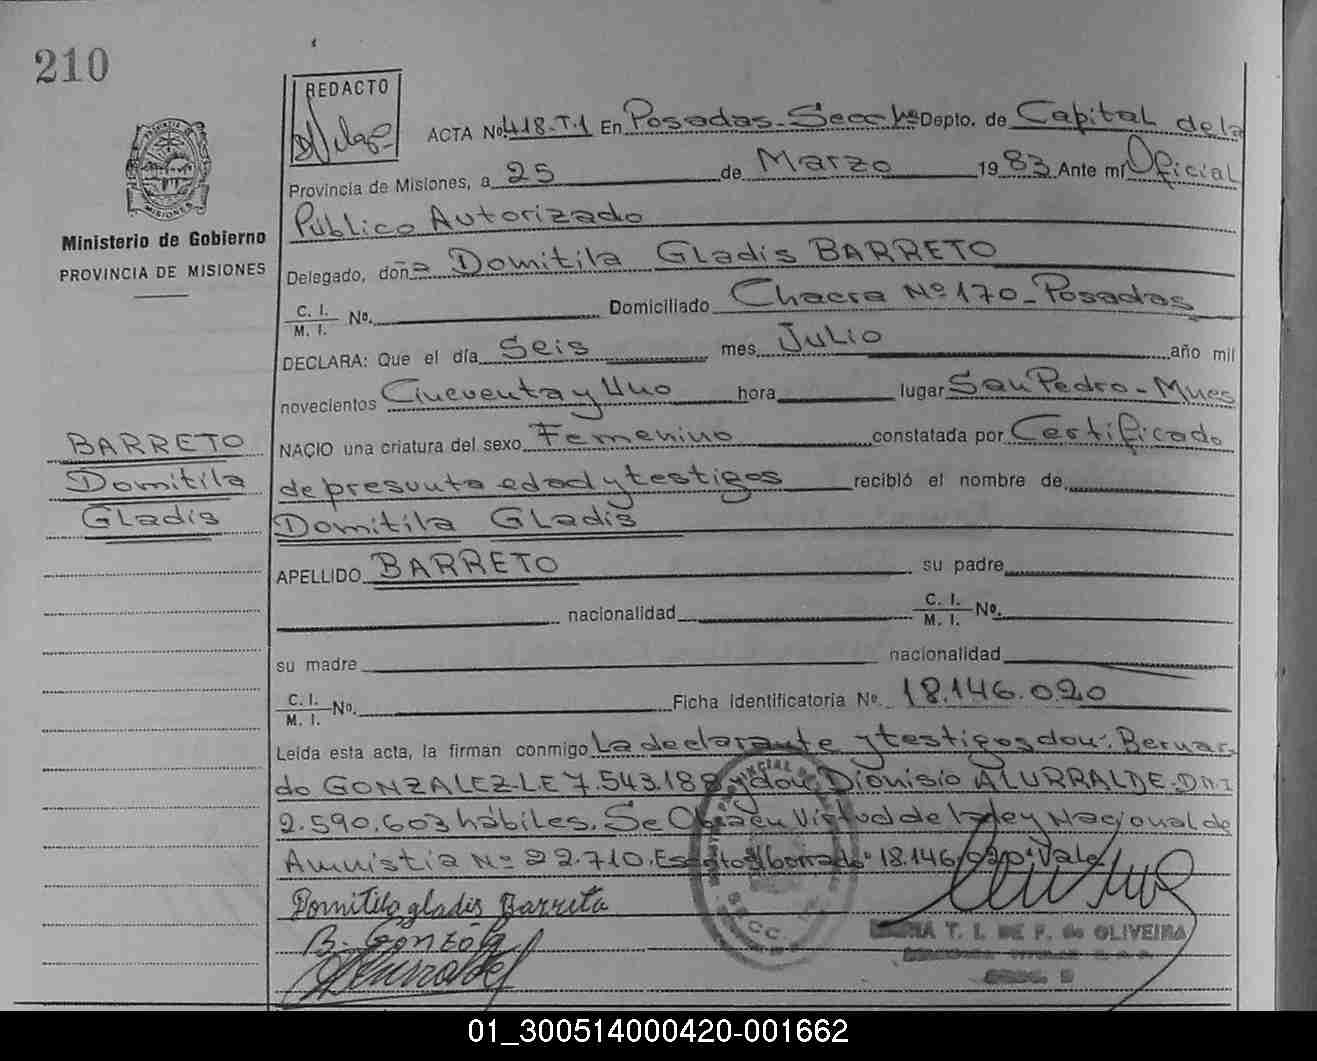 210
REDACTO
ACTA No 418-T.1 En Posadas-Secc 1ª Depto. de Capital de la
Provincia de Misiones, a 25 de Marzo 1983 Ante mí Oficial
PROVINCIA DE MISIONES
Público Autorizado
Ministerio de Gobierno
PROVINCIA DE MISIONES
Delegado, doña Domitila Gladis BARRETO
C. I.
M. I. No. Domiciliado Chacra Nº 170-Posadas
DECLARA: Que el día Seis mes Julio año mil
novecientos Cincuenta y Uno hora lugar San Pedro-Mnes
NACIO una criatura del sexo Femenino constatada por Certificado
BARRETO
Domitila
Gladis
de presunta edad y testigos recibió el nombre de
Domitila Gladis
APELLIDO BARRETO su padre
nacionalidad C. I.
M. I. No.
su madre nacionalidad
C. I.
M. I. No. Ficha identificatoria No. 18.146.020
Leída esta acta, la firman conmigo La declarante y testigos don: Bernar-
do GONZALEZ-LE 7.543.188 y don Dionisio ALURRALDE-DNI
2.590.603 hábiles. Se Obra en Virtud de la ley Nacional de
Amnistia Nº 22.710. Es borrado: 18.146.020: Vale
Domitila gladis Barreto
B. Gonzále
Alurralde
SECC.
T. I. DE F. de OLIVEIRA
01_300514000420-001662